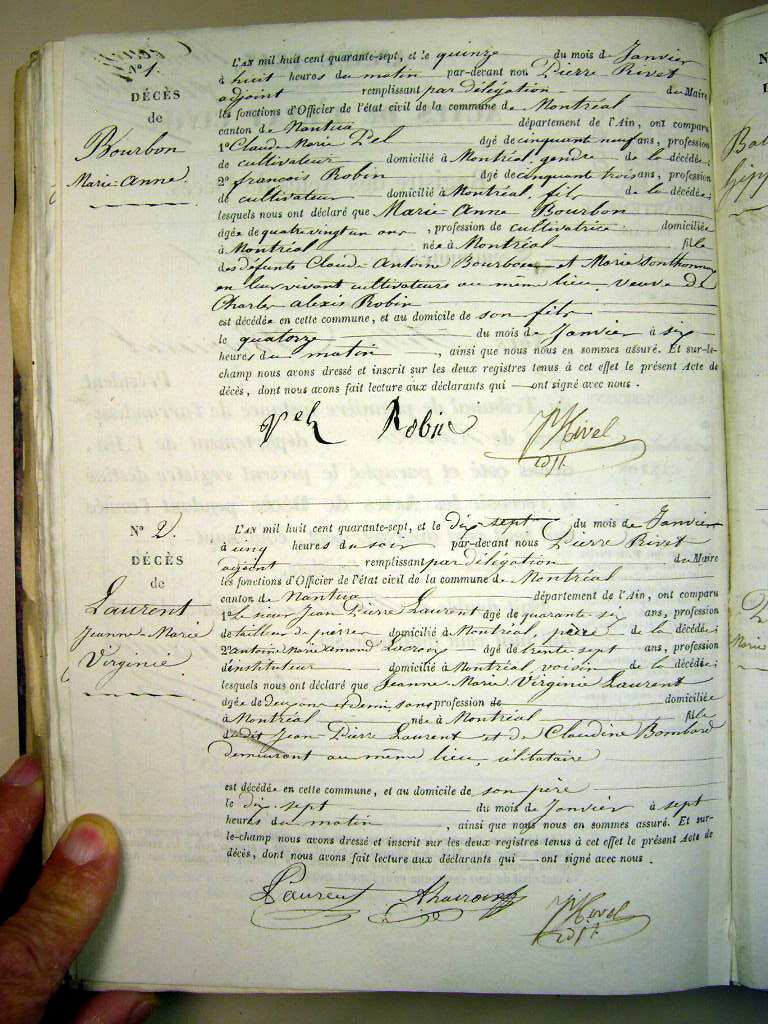 N° 1.
DÉCÈS
de
Bourbon
Marie-Anne.
L'AN mil huit cent quarante-sept, et le quinze du mois de Janvier
à huit heures du matin par-devant nous Pierre Rivet
adjoint remplissant par délégation du Maire
les fonctions d'Officier de l'état civil de la commune de Montréal
canton de Nantua département de l'Ain, ont comparu
1° Claude Marie Pel âgé de cinquante neuf ans, profession
de cultivateur domicilié à Montréal, gendre de la décédée;
2° françois Robin âgé de cinquante trois ans, profession
de cultivateur domicilié à Montréal, fils de la décédée;
lesquels nous ont déclaré que Marie-Anne Bourbon
âgée de quatre vingt un ans, profession de cultivatrice domiciliée
à Montréal née à Montréal fille
des défunts Claude-Antoine Bourbon et Marie Sonthonnax
en leur vivant cultivateurs au même lieu, veuve de
Charles alexis Robin
est décédée en cette commune, et au domicile de son fils
le quatorze du mois de Janvier à six
heures du matin, ainsi que nous nous en sommes assuré. Et sur-le-
champ nous avons dressé et inscrit sur les deux registres tenus à cet effet le présent Acte de
décès, dont nous avons fait lecture aux déclarants qui ont signé avec nous.
Robin
N° 2.
DÉCÈS
de
Laurent
Jeanne-Marie
Virginie
L'AN mil huit cent quarante-sept, et le dix sept du mois de Janvier
à cinq heures du soir par-devant nous Pierre Rivet
adjoint remplissant par délégation du Maire
les fonctions d'Officier de l'état civil de la commune de Montréal
canton de Nantua département de l'Ain, ont comparu
1° Le sieur Jean Pierre Laurent âgé de quarante-six ans, profession
de tailleur de pierres domicilié à Montréal, père de la décédée;
2° antoine Marie amond Lacroix âgé de trente-sept ans, profession
d'instituteur domicilié à Montréal, voisin de la décédée;
lesquels nous ont déclaré que Jeanne-Marie Virginie Laurent
âgée de deux ans et demi, sans profession de domiciliée
à Montréal née à Montréal fille
dudit Jean-Pierre Laurent et de Claudine Bombard
demeurant au même lieu, célibataire
est décédée en cette commune, et au domicile de son père
le dix-sept du mois de Janvier à sept
heures du matin, ainsi que nous nous en sommes assuré. Et sur-
le-champ nous avons dressé et inscrit sur les deux registres tenus à cet effet le présent Acte de
décès, dont nous avons fait lecture aux déclarants qui ont signé avec nous.
Laurent